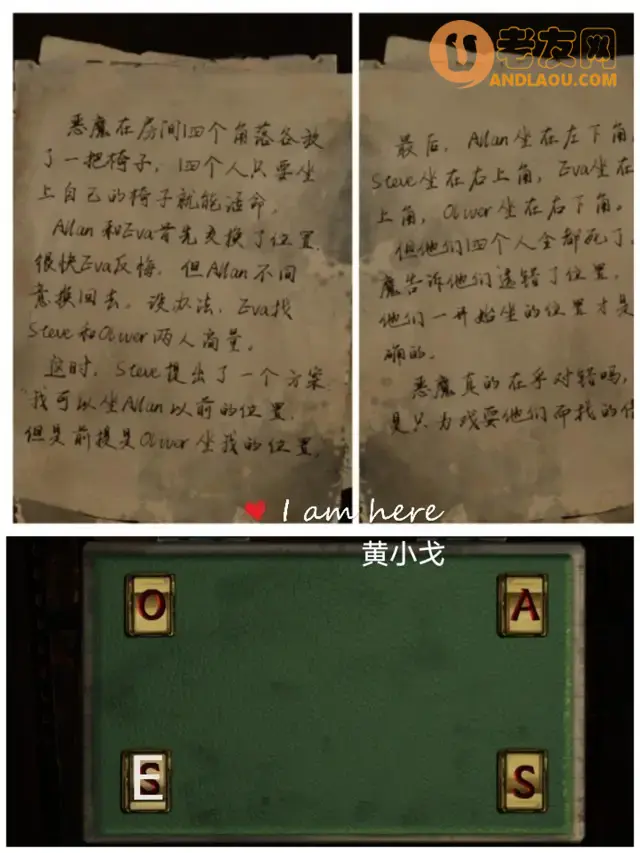 老友网
ANDLAOU.COM
恶魔在房间四个角落各放
了一把椅子，四个人只要坐
上自己的椅子就能活命。
Allan和Eva首先交换了位置，
很快Eva反悔，但Allan不同
意换回去。没办法，Eva找
Steve和Oliver两人商量。
这时，Steve提出了一个方案
“我可以坐Allan以前的位置，
但是前提是Oliver坐我的位置。
最后，Allan坐在左下角，
Steve坐在右上角，Eva坐在
上角，Oliver坐在右下角。
但他们四个人全都死了，
魔告诉他们选错了位置，
他们一开始坐的位置才是
确的。
恶魔真的在乎对错吗，
是只为戏耍他们而找的借
I am here
黄小戈
O
A
E
S